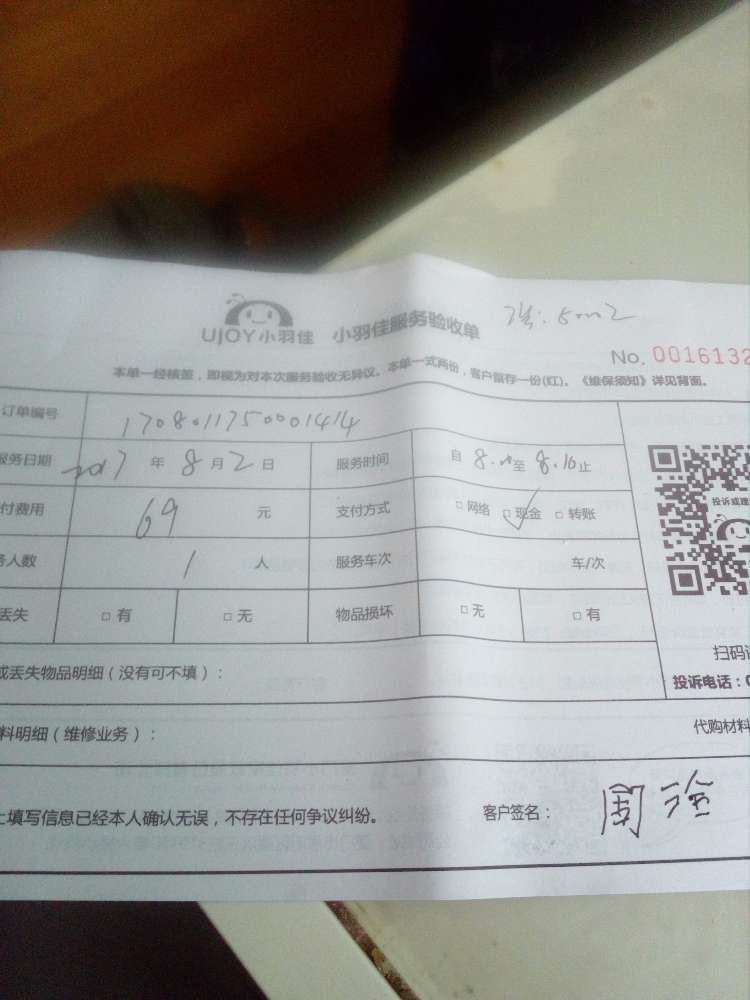 UJOY小羽佳 小羽佳服务验收单
No. 0016132
本单一经核签，即视为对本次服务验收无异议。本单一式两份，客户留存一份(红)。《维保须知》详见背面。
订单编号 1708011750001414
服务日期 2017 年 8 月 2 日 服务时间 自 8. 至 8.10 止
付费用 69 元 支付方式 □ 网络 □ 现金 □ 转账
务人数 1 人 服务车次 车/次
丢失 □ 有 □ 无 物品损坏 □ 无 □ 有
投诉或建
扫码
投诉电话：0
或丢失物品明细（没有可不填）：
料明细（维修业务）： 代购材料
上填写信息已经本人确认无误，不存在任何争议纠纷。 客户签名： 周